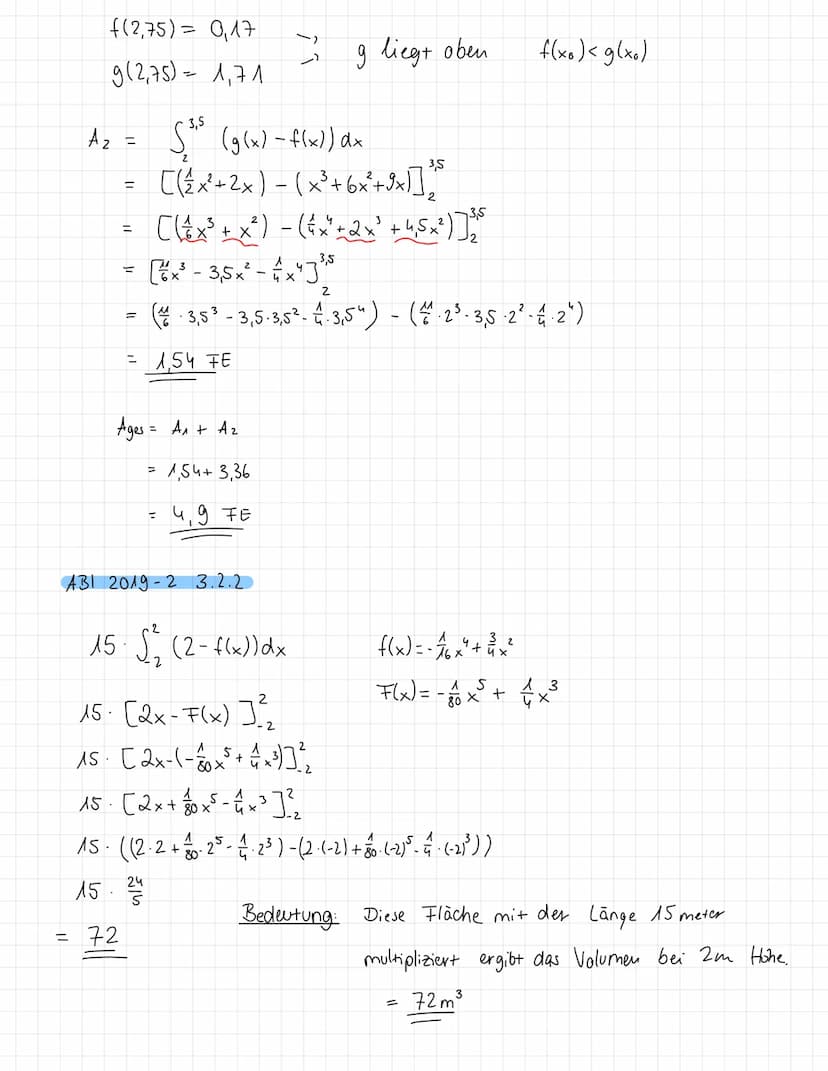 f(2,75) = 0,17
g(2,75) = 1,71
g liegt oben f(x₀) < g(x₀)
A₂ = ∫₂^3,5 (g(x) - f(x)) dx
= [(1/2 x² + 2x) - (x³ + 6x² + 9x)]₂^3,5
= [(1/6 x³ + x²) - (1/4 x⁴ + 2x³ + 4,5x²)]₂^3,5
= [11/6 x³ - 3,5x² - 1/4 x⁴]₂^3,5
= (11/6 · 3,5³ - 3,5 · 3,5² - 1/4 · 3,5⁴) - (11/6 · 2³ - 3,5 · 2² - 1/4 · 2⁴)
= 1,54 FE
Ages = A₁ + A₂
= 1,54 + 3,36
= 4,9 FE
ABI 2019-2 3.2.2
15 · ∫₋₂² (2 - f(x)) dx f(x) = -1/16 x⁴ + 3/4 x²
F(x) = -1/80 x⁵ + 1/4 x³
15 · [2x - F(x)]₋₂²
15 · [2x - (-1/80 x⁵ + 1/4 x³)]₋₂²
15 · [2x + 1/80 x⁵ - 1/4 x³]₋₂²
15 · ((2 · 2 + 1/80 · 2⁵ - 1/4 · 2³) - (2 · (-2) + 1/80 · (-2)⁵ - 1/4 · (-2)³))
15 · 24/5
= 72
Bedeutung: Diese Fläche mit der Länge 15 meter
multipliziert ergibt das Volumen bei 2m Höhe.
= 72 m³